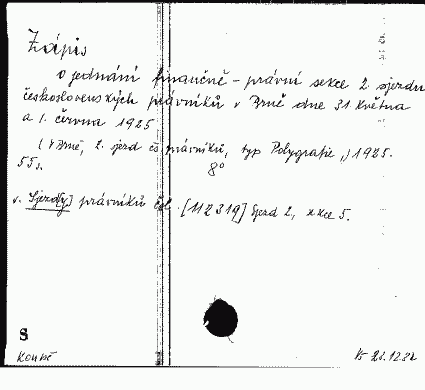 Zápis
o jednání finančně-právní sekce 2. sjezdu
československých právníků v Brně dne 31. května
a 1. června 1925
(v Brně, 2. sjezd čs. právníků, typ Polygrafie,) 1925.
55 s. 8°
v. Sjezdy] právníků čsl. [112319] Sjezd 2, sekce 5.
S
Koupě 23.12.82